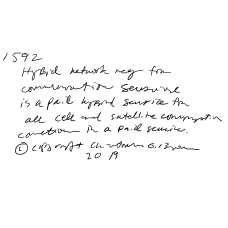 1592
Hybrid network neg for
communication Service
is a paid hybrid service for
all cell and satellite communication
connections in a paid service.
© Copyright Christian G.
2019